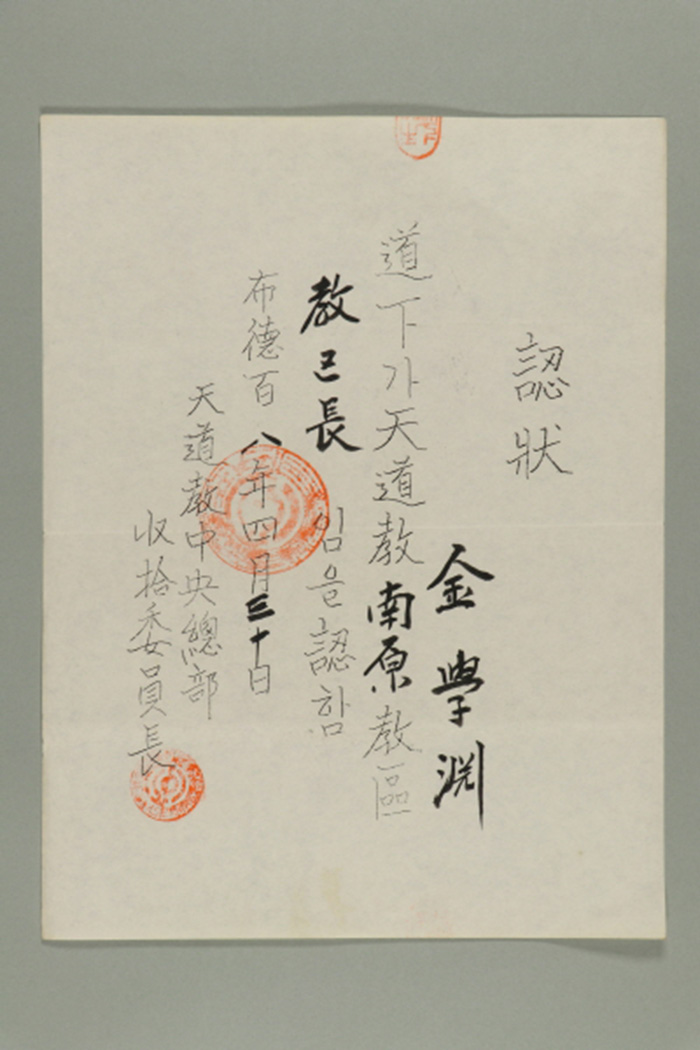 認狀
金學淵
道下가天道敎南原敎區
敎區長임을認함
布德百八年四月三十日
天道敎中央總部
收拾委員長